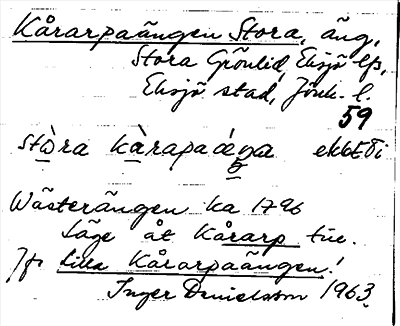 Kårarpaängen Stora, äng,
Stora Grönlid, Eksjö lfs,
Eksjö stad, Jönk. l.
59
stò̱ra kà̱rapaǽŋa ekbtEdi
Wästerängen ka 1796
Läge åt Kårarp tue.
Jfr Lilla Kårarpaängen!
Inger Danielsson 1963.